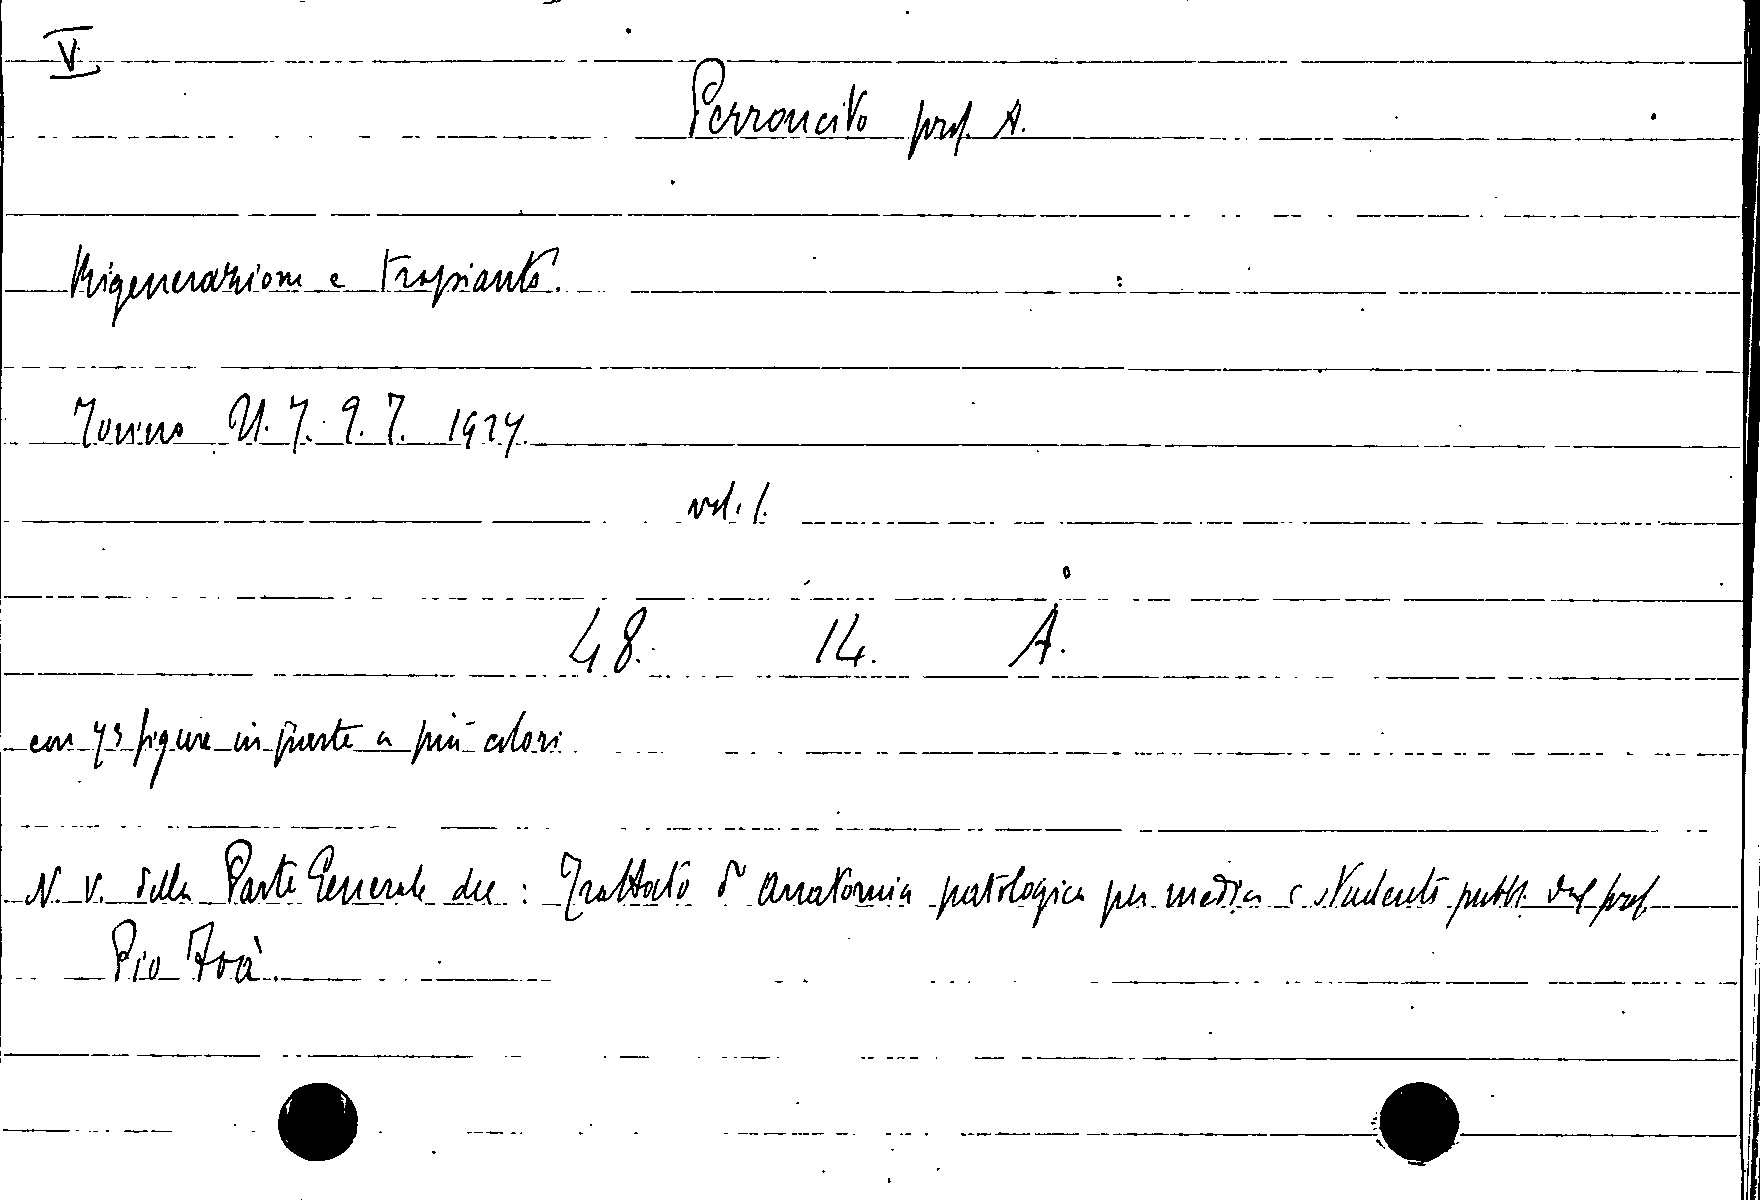 V
Perroncito prof. A.
Rigenerazione e trapianto.
Torino U. T. E. T. 1924.
vol. 1.
48. 14. A.
con 73 figure in parte a più colori
N. V. della Parte Generale del : Trattato di anatomia patologica per medici e studenti pubbl. dal prof.
Pio Foà.